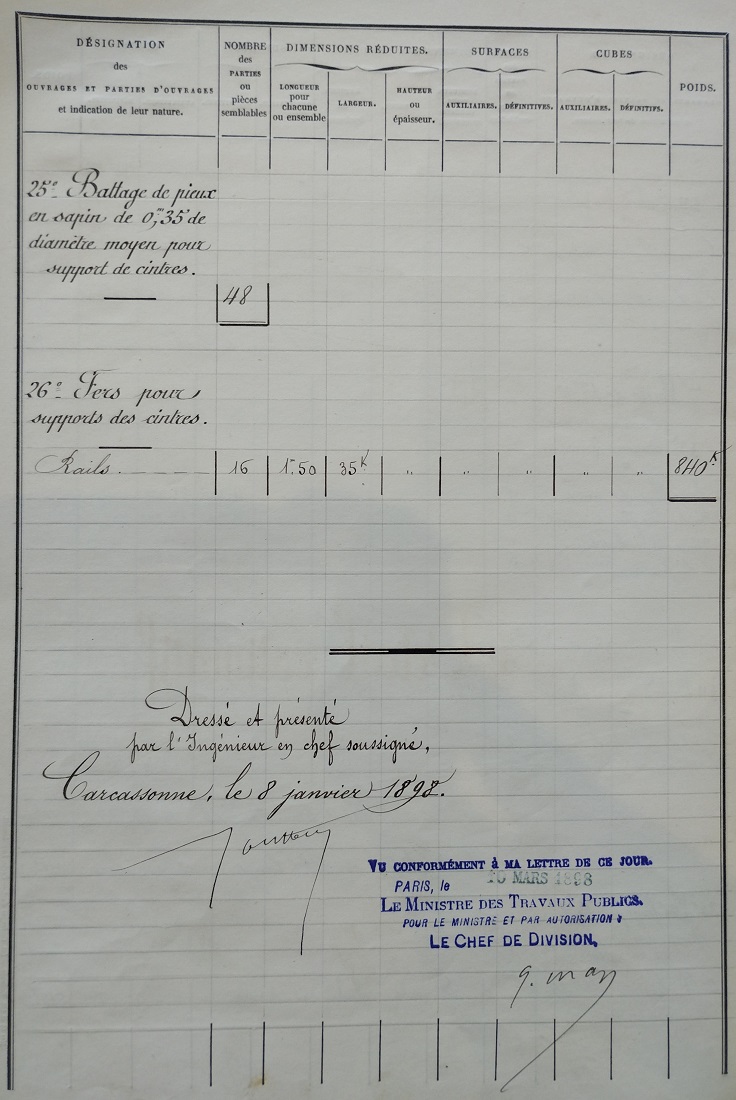 DÉSIGNATION
des
OUVRAGES ET PARTIES D'OUVRAGES
et indication de leur nature.
NOMBRE
des
PARTIES
ou
pièces
semblables
DIMENSIONS RÉDUITES.
LONGUEUR
pour
chacune
ou ensemble
LARGEUR.
HAUTEUR
ou
épaisseur.
SURFACES
AUXILIAIRES.
DÉFINITIVES.
CUBES
AUXILIAIRES.
DÉFINITIFS.
POIDS.
25° Battage de pieux
en sapin de 0,m35 de
diamètre moyen pour
support de cintres.
48
26° Fers pour
supports des cintres.
Rails. 16 1m.50 35K " " " " " 840K
Dressé et présenté
par l'Ingénieur en chef soussigné,
Carcassonne, le 8 janvier 1898.
VU CONFORMÉMENT à MA LETTRE DE CE JOUR.
PARIS, le MARS 1898
LE MINISTRE DES TRAVAUX PUBLICS.
POUR LE MINISTRE ET PAR AUTORISATION
LE CHEF DE DIVISION,